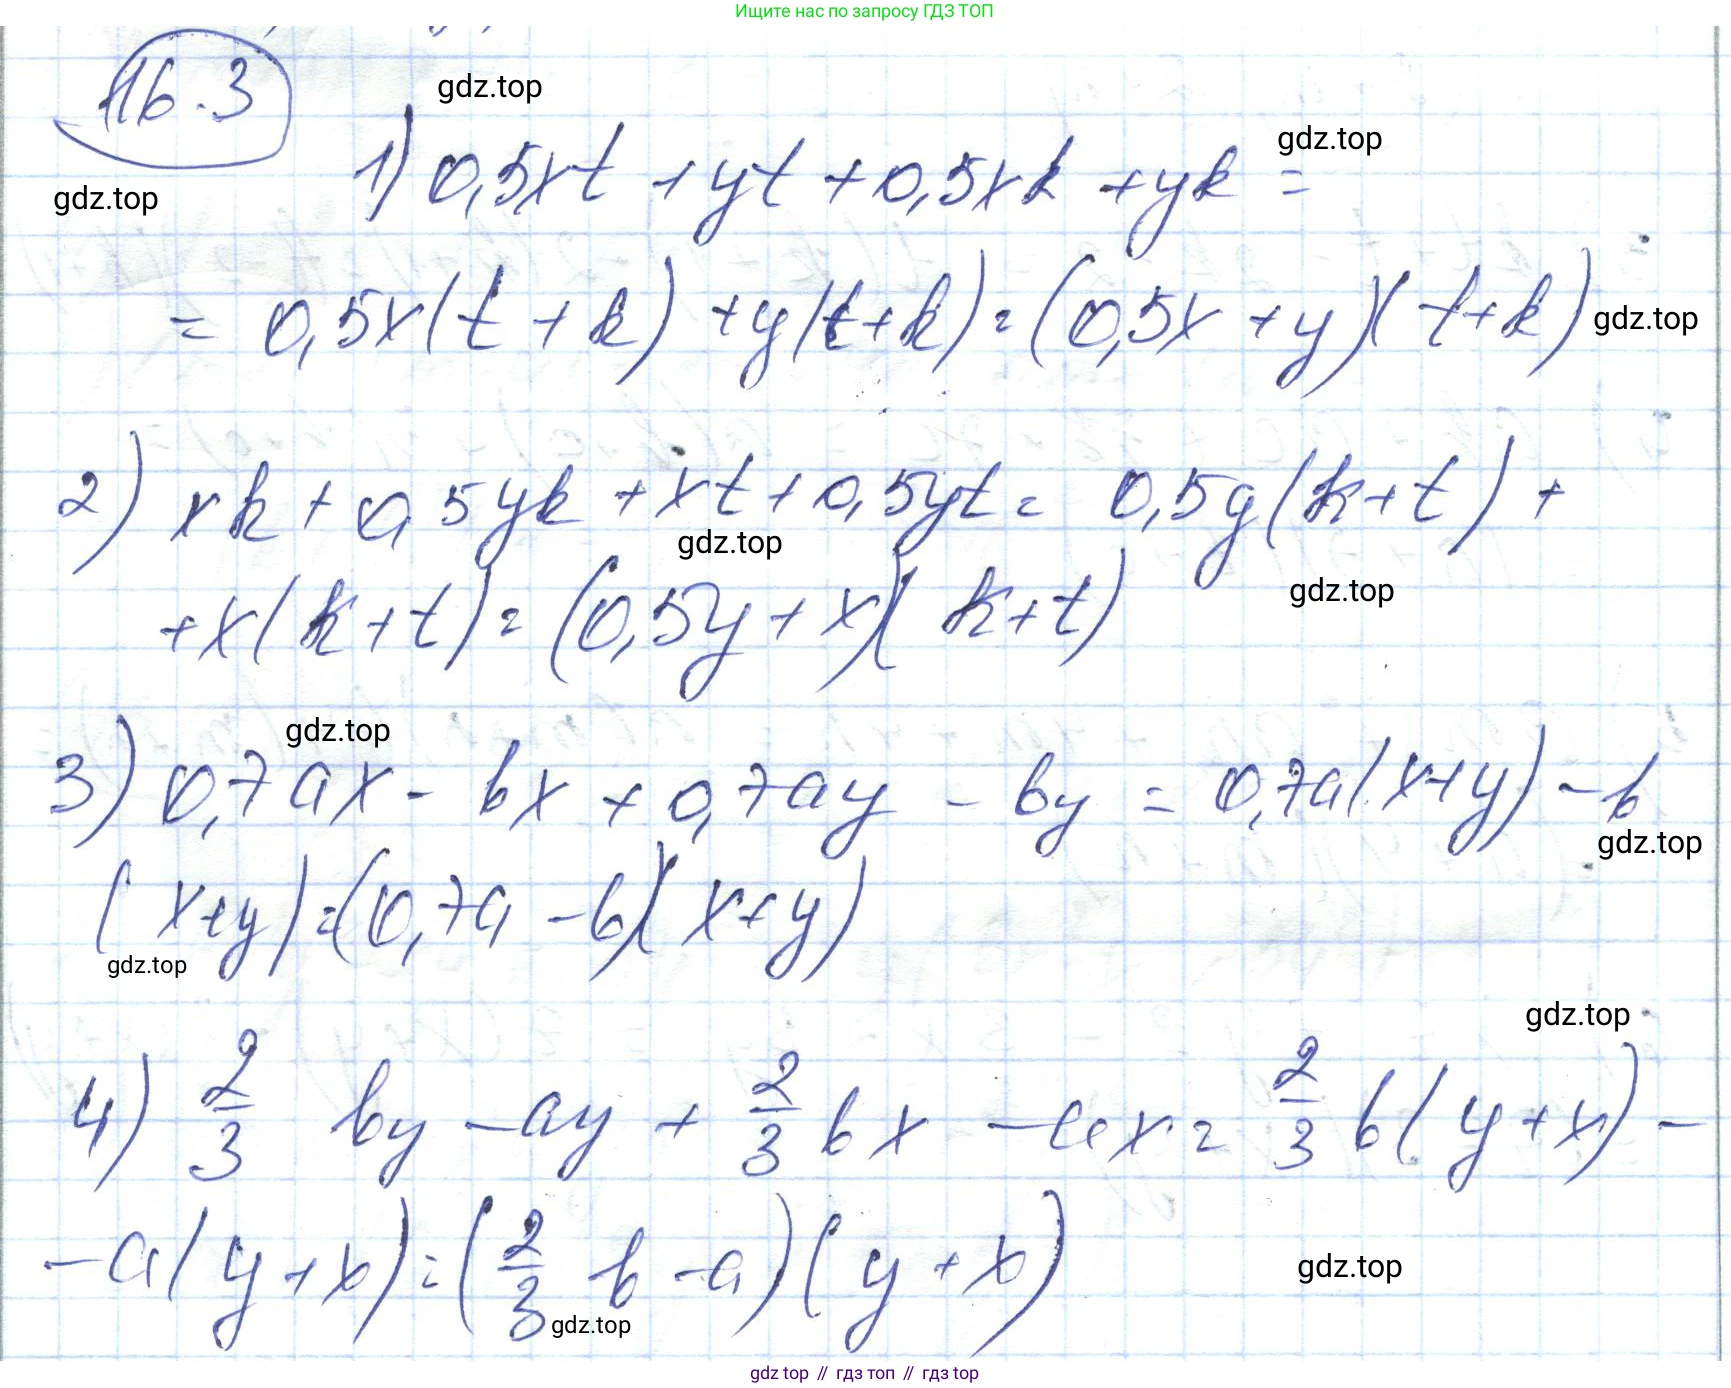 Ищите нас по запросу ГДЗ ТОП
16.3
gdz.top
gdz.top
gdz.top
1) 0,5xt + yt + 0,5xk + yk =
= 0,5x(t + k) + y(t+k) = (0,5x + y)(t+k)
gdz.top
2) xk + 0,5yk + xt + 0,5yt = 0,5y(k+t) +
gdz.top
gdz.top
+ x(k+t) = (0,5y + x)(k+t)
gdz.top
3) 0,7ax - bx + 0,7ay - by = 0,7a(x+y) - b
gdz.top
(x+y) = (0,7a - b)(x+y)
gdz.top
gdz.top
4) 2/3 by - ay + 2/3 bx - ax = 2/3 b(y+x) -
- a(y+x) = (2/3 b - a)(y+x)
gdz.top
gdz.top
gdz top // гдз топ // гдз top